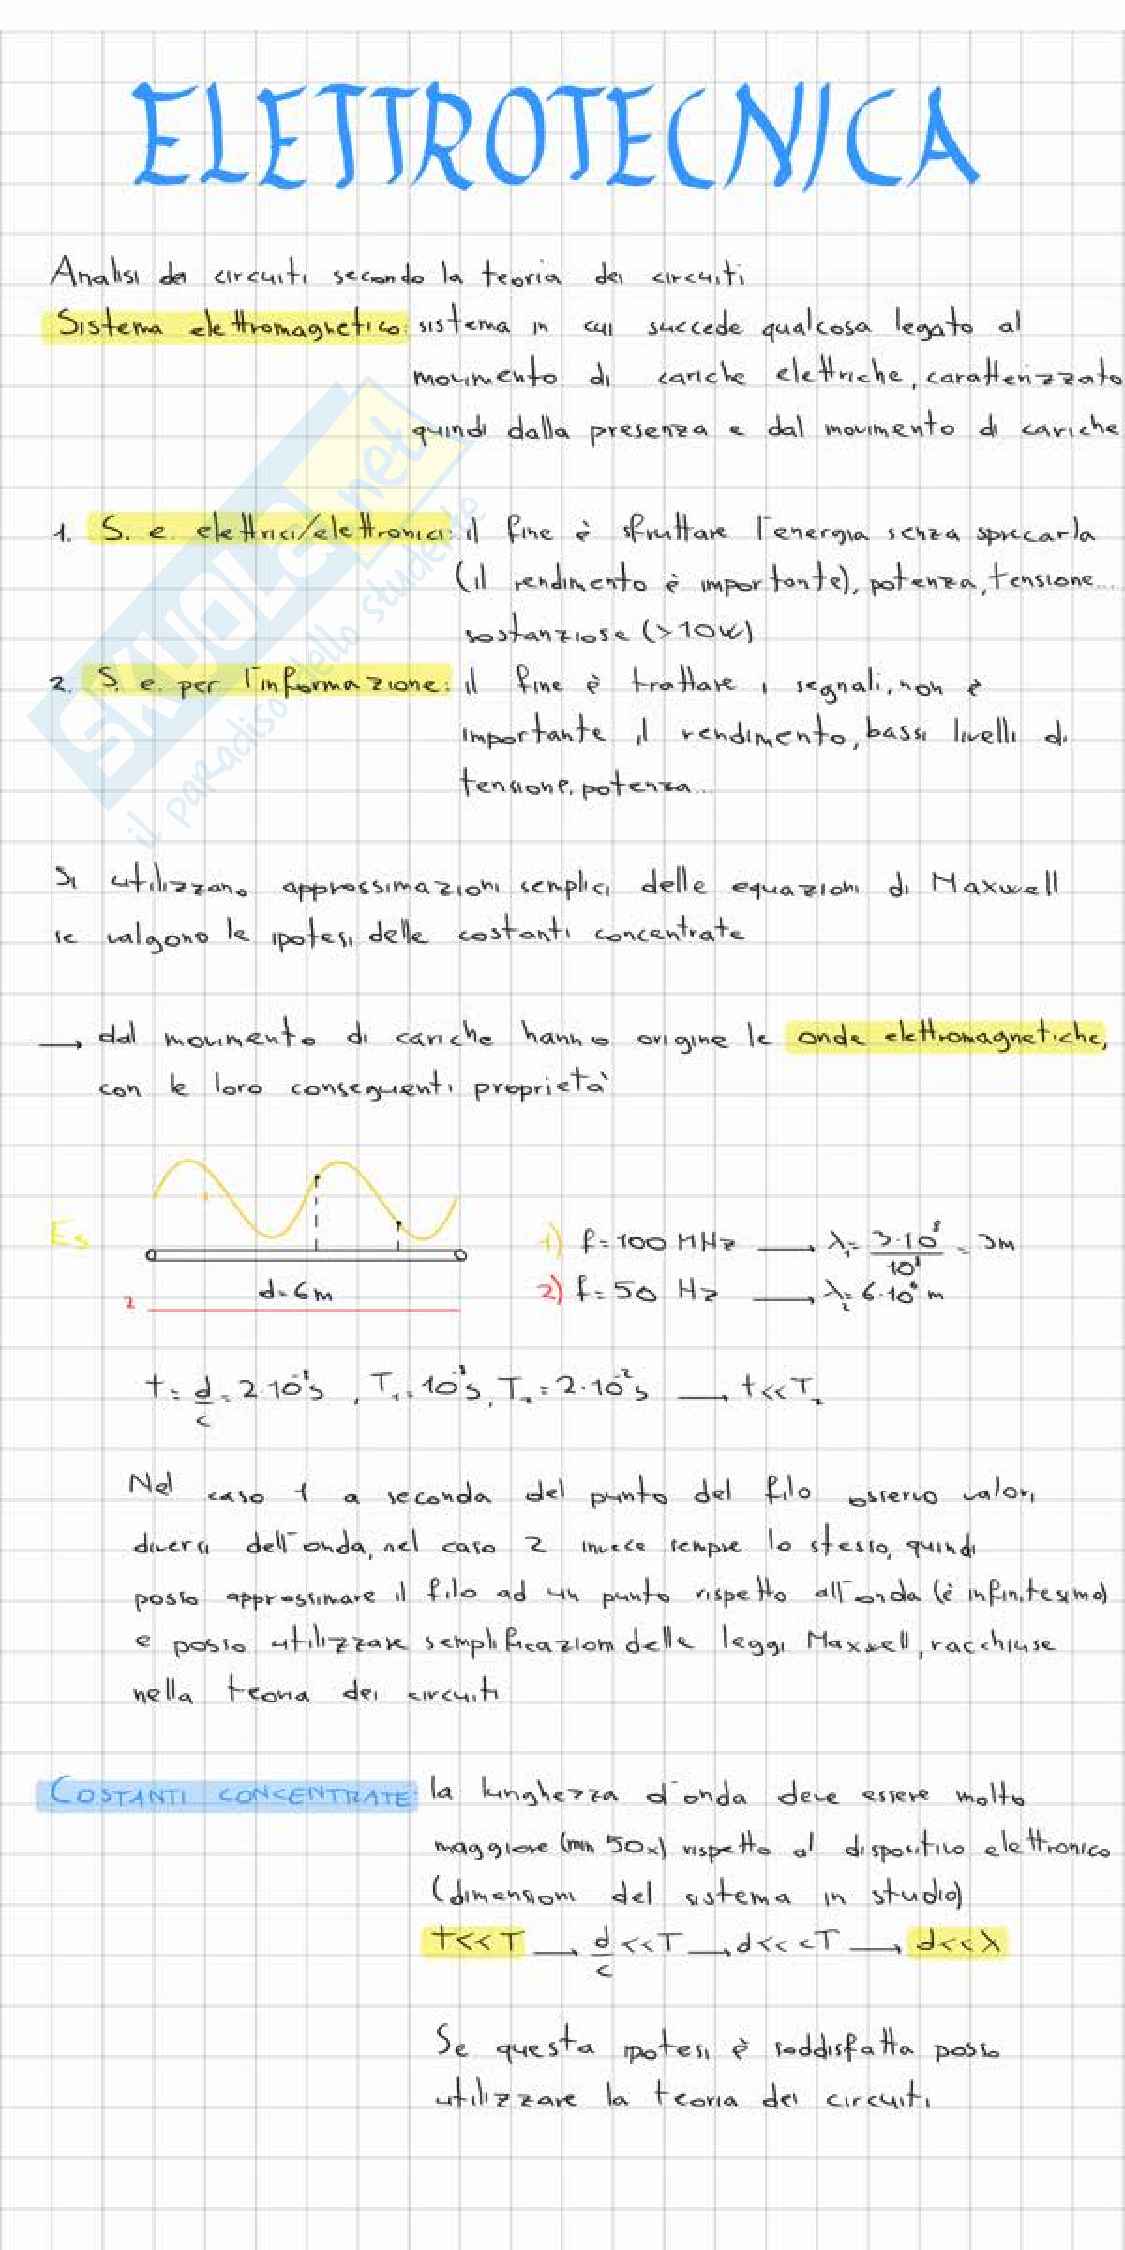 ELETTROTECNICA
Analisi dei circuiti secondo la teoria dei circuiti
Sistema elettromagnetico: sistema in cui succede qualcosa legato al
movimento di cariche elettriche, caratterizzato
quindi dalla presenza e dal movimento di cariche
1. S. e. elettrici/elettronici: il fine è sfruttare l'energia senza sprecarla
(il rendimento è importante), potenza, tensione...
sostanziose (>10W)
2. S. e. per l'informazione: il fine è trattare i segnali, non è
importante il rendimento, bassi livelli di
tensione, potenza...
SKUOLA.net
il paradiso dello studente
Si utilizzano approssimazioni semplici delle equazioni di Maxwell
se valgono le ipotesi delle costanti concentrate
→ dal movimento di cariche hanno origine le onde elettromagnetiche,
con le loro conseguenti proprietà
Es
d=6m
2
1) f=100 MHz → λ₁= 3·10⁸/10⁸ = 3m
2) f=50 Hz → λ₂= 6·10⁶ m
t= d/c = 2·10⁻⁸s, T₁= 10⁻⁸s, T₂= 2·10⁻²s → t<<T₂
Nel caso 1 a seconda del punto del filo osservo valori
diversi dell'onda, nel caso 2 invece sempre lo stesso, quindi
posso approssimare il filo ad un punto rispetto all'onda (è infinitesimo)
e posso utilizzare semplificazioni delle leggi Maxwell, racchiuse
nella teoria dei circuiti
COSTANTI CONCENTRATE: la lunghezza d'onda deve essere molto
maggiore (min 50x) rispetto al dispositivo elettronico
(dimensioni del sistema in studio)
t<<T → d/c <<T → d<<cT → d<<λ
Se questa ipotesi è soddisfatta posso
utilizzare la teoria dei circuiti